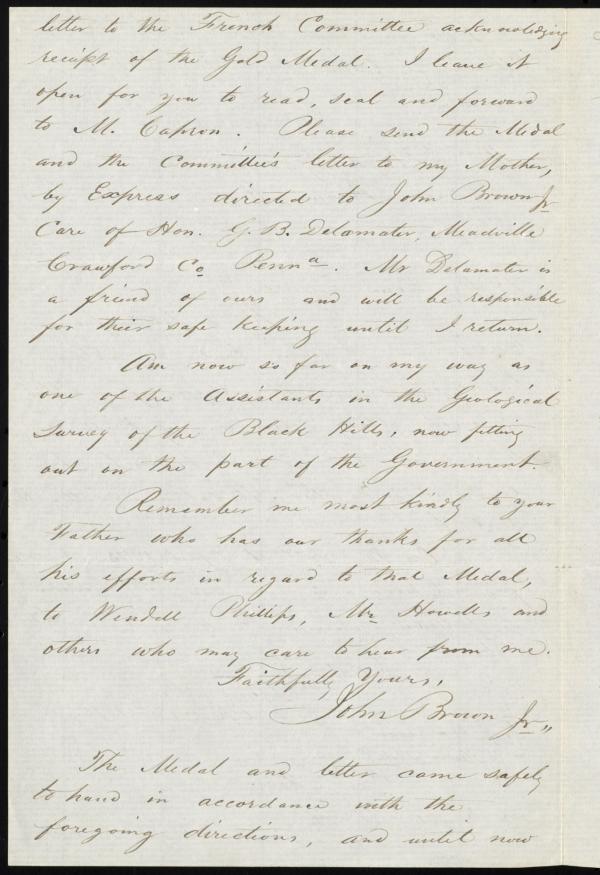 letter to the French Committee acknowledging
receipt of the Gold Medal. I leave it
open for you to read, seal and forward
to M. Capron. Please send the Medal
and the Committee's letter to my Mother,
by Express directed to John Brown Jr
Care of Hon. G. B. Delamater, Meadville
Crawford Co Penna. Mr Delamater is
a friend of ours and will be responsible
for their safe keeping until I return.
Am now so far on my way as
one of the Assistants in the Geological
Survey of the Black Hills, now fitting
out on the part of the Government.
Remember me most kindly to your
Father who has our thanks for all
his efforts in regard to that Medal,
to Wendell Phillips, Mr Howells and
others who may care to hear from me.
Faithfully Yours,
John Brown Jr,,
The Medal and letter came safely
to hand in accordance with the
foregoing directions, and until now